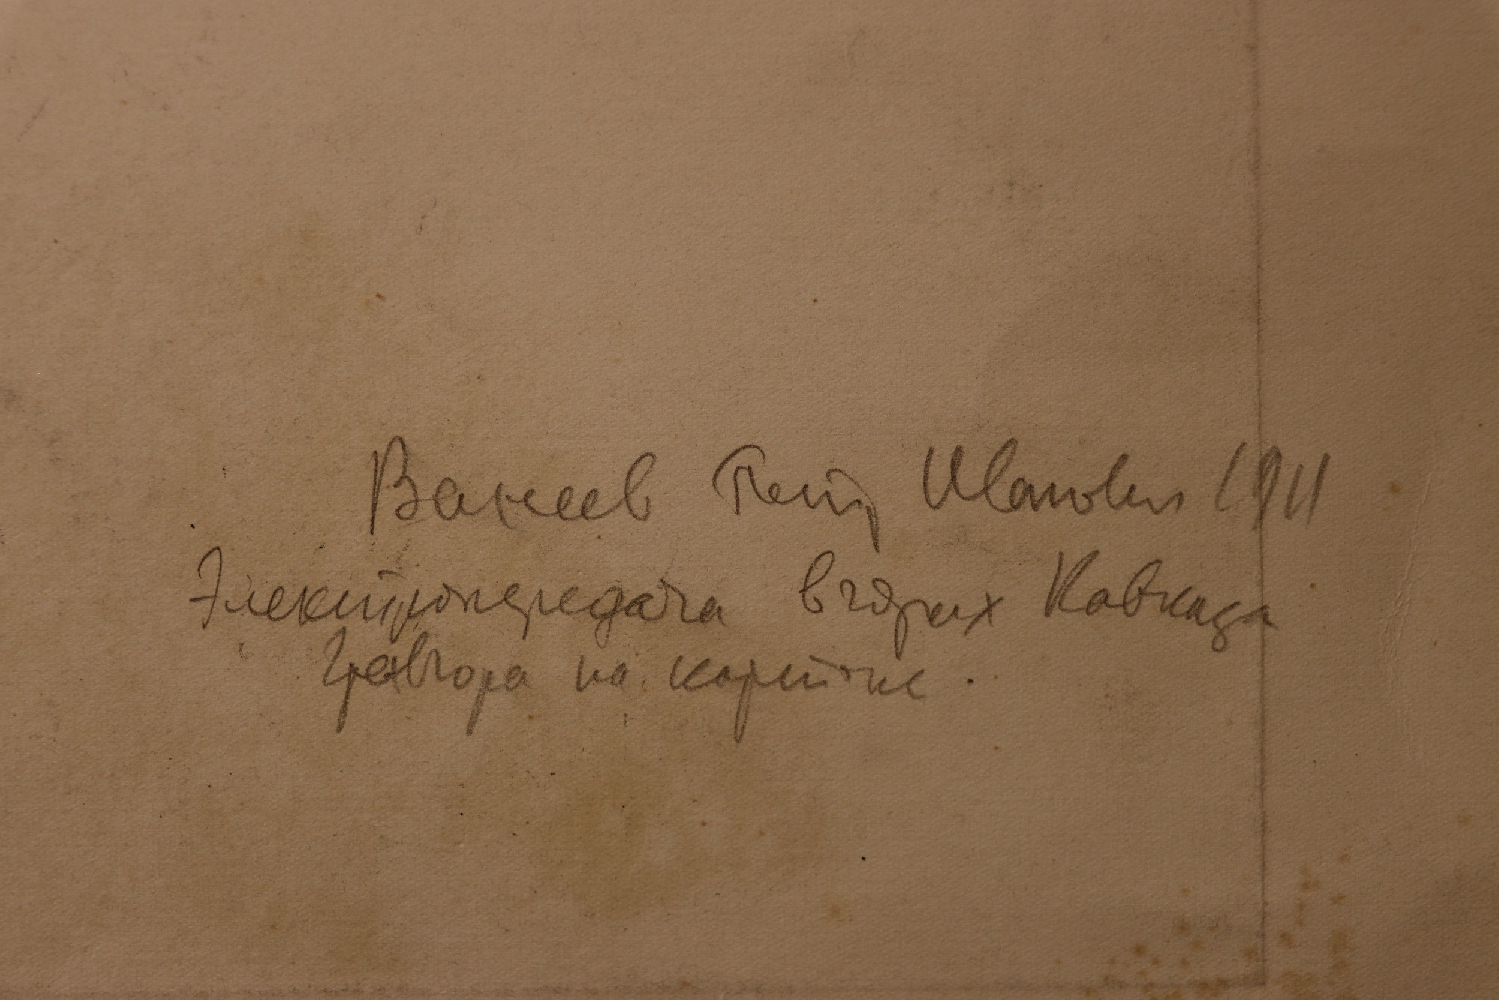 Ванеев Петр Иванович 1911
Электропередача в горах Кавказа
Гравюра на картоне.